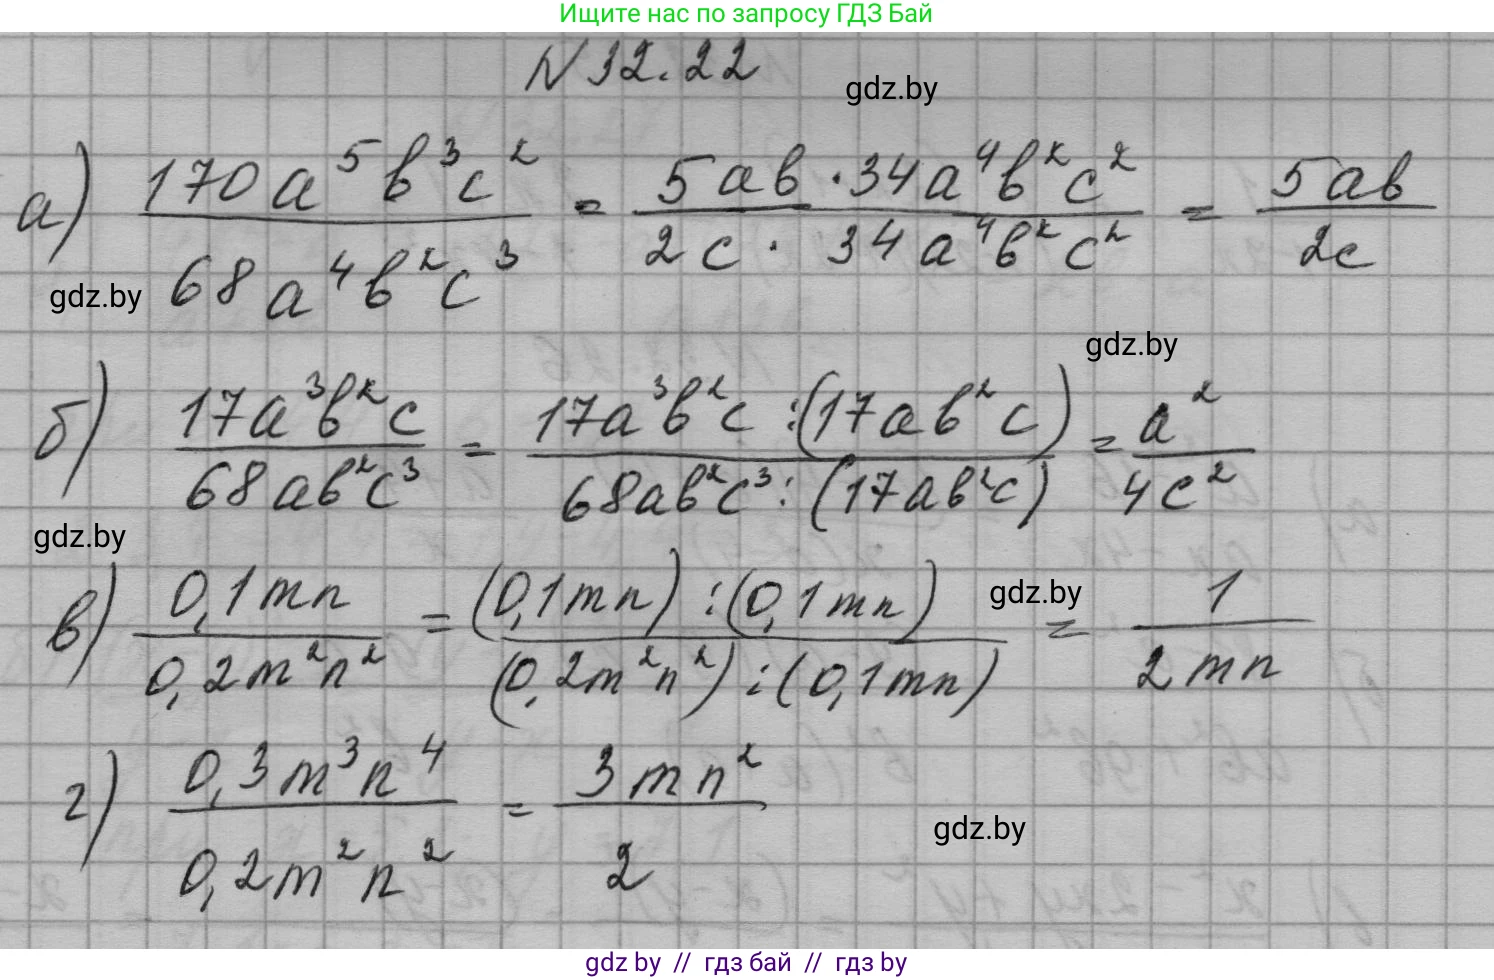 Ищите нас по запросу ГДЗ Бай
N 32.22
gdz.by
а) 170a⁵b³c² / 68a⁴b²c³ = 5ab · 34a⁴b²c² / 2c · 34a⁴b²c² = 5ab / 2c
gdz.by
gdz.by
б) 17a³b²c / 68ab²c³ = 17a³b²c : (17ab²c) / 68ab²c³ : (17ab²c) = a² / 4c²
gdz.by
gdz.by
в) 0,1mn / 0,2m²n² = (0,1mn) : (0,1mn) / (0,2m²n²) : (0,1mn) = 1 / 2mn
г) 0,3m³n⁴ / 0,2m²n² = 3mn² / 2
gdz.by
gdz by // гдз бай // гдз by